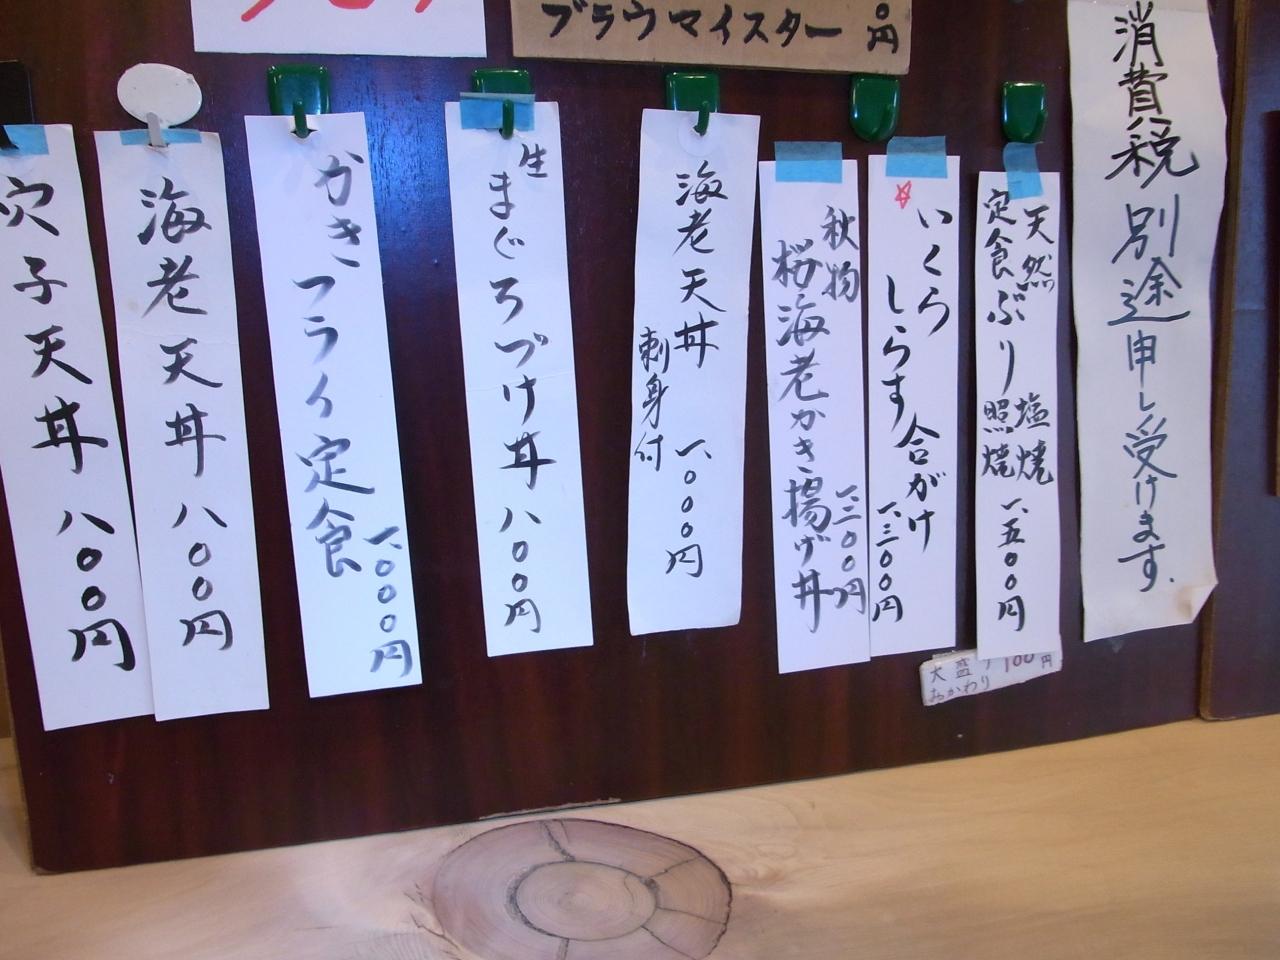 ブラウマイスター 円
消費税別途申し受けます。
天然
定食ぶり 塩焼
照焼
一、五〇〇円
いくら
しらす合がけ
一、三〇〇円
秋物
桜海老かき揚げ丼
一、三〇〇円
海老天丼 一、〇〇〇円
刺身付
生
まぐろづけ丼 八〇〇円
かきフライ定食
一、〇〇〇円
海老天丼 八〇〇円
穴子天丼 八〇〇円
大盛り 100円
おかわり